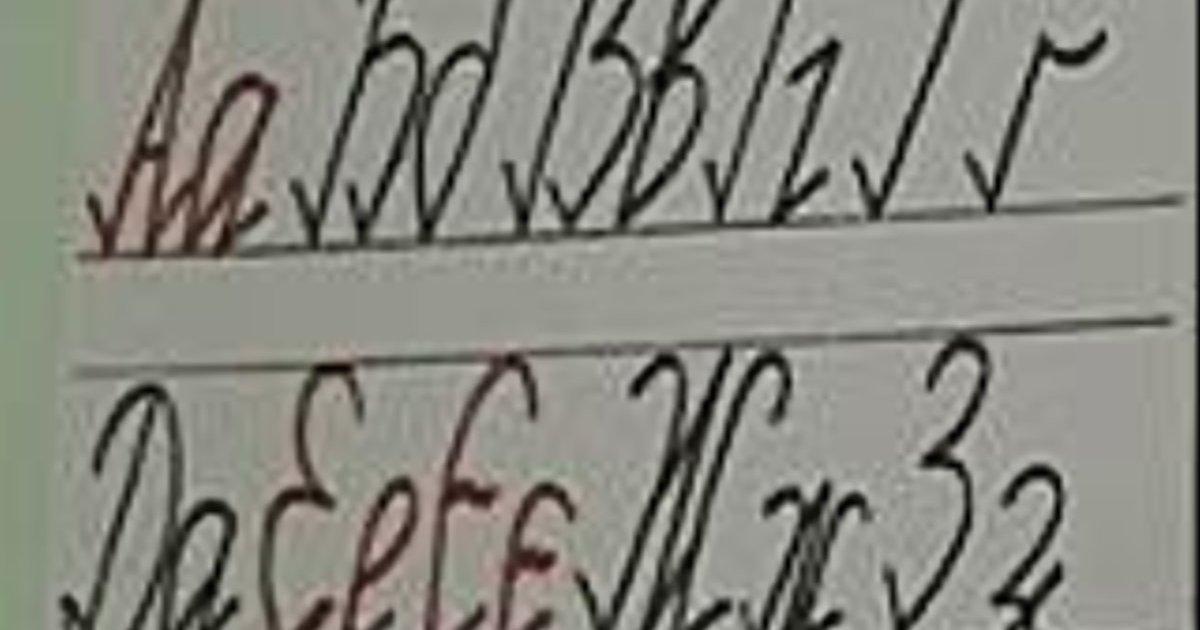 Аа Бб Вв Гг Ґґ
Дд Ее Єє Жж Зз